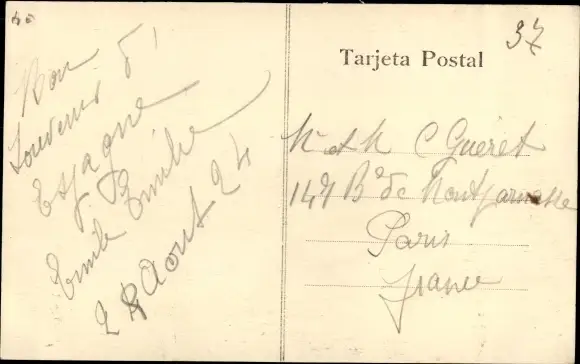 Bon
Souvenir d'
Espagne
Emile Emilie
28 Aout 24
Tarjeta Postal
37
Mr et M C Guéret
147 Bd de Montparnasse
Paris
France